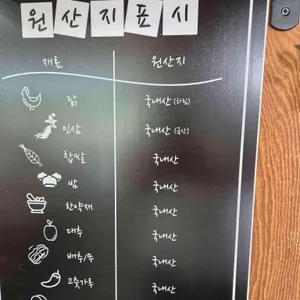 원산지표시
재료 원산지
닭 국내산 (하림)
인삼 국내산 (금산)
찹쌀 국내산
밤 국내산
한약재 국내산
대추 국내산
배추/무 국내산
고춧가루 국내산